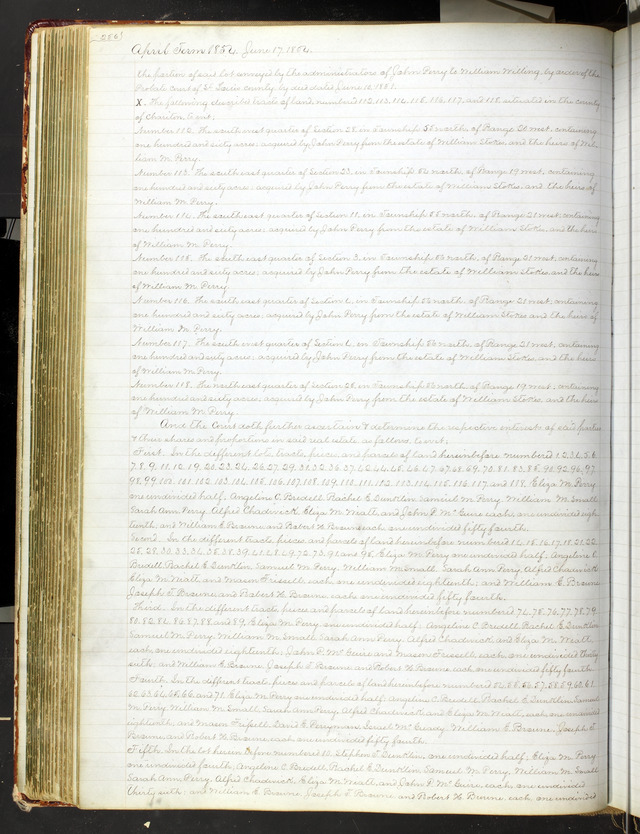 April Term 1854. June 17. 1854.
the portion of said lot conveyed by the administrators of John Perry to William Milling, by order of the
Probate court of St. Louis county by deed dated June 10. 1851.
X. The following described tracts of land, numbered 112, 113, 114, 115, 116, 117, and 118 situated in the county
of Chariton to wit.
Number 112. The south east quarter of Section 28. in Township 55 north, of Range 20 west, containing
one hundred and sixty acres; acquired by John Perry from the estate of William Stokes and the heirs of Wil-
liam M. Perry.
Number 113. The south east quarter of Section 23, in Township 54 north, of Range 19 west, containing
one hundred and sixty acres; acquired by John Perry from the estate of William Stokes, and the heirs of
William M. Perry.
Number 114. The south east quarter of Section 11, in Township 55 north, of Range 21 west, containing
one hundred and sixty acres; acquired by John Perry from the estate of William Stokes, and the heirs
of William M. Perry.
Number 115. The south east quarter of Section 3, in Township 53 north, of Range 21 west, containing
one hundred and sixty acres; acquired by John Perry from the estate of William Stokes and the heirs
of William M. Perry
Number 116. The south west quarter of Section 1, in Township 53 north, of Range 21 west, containing
one hundred and sixty acres; acquired by John Perry from the estate of William Stokes and the heirs of
William M. Perry.
Number 117. The south east quarter of Section 1, in Township north, of Range 21 west, containing
one hundred and sixty acres; acquired by John Perry from the estate of William Stokes, and the heirs
of William M. Perry.
Number 118. The north east quarter of Section 28, in Township north, of Range 19 west, containing
one hundred and sixty acres; acquired by John Perry from the estate of William Stokes, and the heirs
of William M. Perry.
And the Court doth further ascertain & determine the respective interests of said parties
& their shares and proportions in said real estate as follows, to wit;
First. In the different lots, tracts, pieces, and parcels of land hereinbefore numbered 1, 2, 3, 4, 5, 6,
7, 8, 9, 11, 12, 19, 20, 23, 24, 26, 27, 29, 31, 32, 36, 37, 42, 44, 45, 46, 47, 67, 68, 69, 70, 81, 83, 85, 90, 92, 96, 97,
98, 99, 100, 101, 102, 103, 104, 105, 106, 107, 108, 109, 110, 111, 112, 113, 114, 115, 116, 117, and 118, Eliza M. Perry,
one undivided half, Angeline C. Bredell, Rachel E. Dunklin, Samuel M. Perry, William M. Small,
Sarah Ann Perry, Alfred Chadwick, Eliza M. Wiatt, and John P. McGuire, each, one undivided eigh-
teenth, and William E. Browne and Robert H. Browne, each one undivided fifty fourth.
Second. In the different tracts, pieces and parcels of land hereinbefore numbered 14, 15, 16, 17, 18, 21, 22,
25, 28, 30, 33, 34, 35, 38, 39, 41, 48, 49, 72, 73, 91 and 95, Eliza M. Perry one undivided half, Angeline C.
Bredell, Rachel E. Dunklin, Samuel M. Perry, William M. Small, Sarah Ann Perry, Alfred Chadwick,
Eliza M. Wiatt and Mason Frissell, each, one undivided eighteenth; and William E. Browne,
Joseph T. Browne and Robert H. Browne, each, one undivided fifty fourth.
Third. In the different tracts, pieces and parcels of land hereinbefore numbered 74, 75, 76, 77, 78, 79,
80, 82, 84, 86, 87, 88 and 89, Eliza M. Perry, one undivided half, Angeline C. Bredell, Rachel E. Dunklin,
Samuel M. Perry, William M. Small, Sarah Ann Perry, Alfred Chadwick, and Eliza M. Wiatt,
each, one undivided eighteenth, John P. McGuire and Mason Frissell, each, one undivided thirty
sixth; and William E. Browne, Joseph T. Browne and Robert H. Browne, each one undivided fifty fourth.
Fourth. In the different tracts, pieces and parcels of land hereinbefore numbered 54, 55, 56, 57, 58, 59, 60, 61,
62, 63, 64, 65, 66, and 71, Eliza M. Perry one undivided half, Angeline C. Bredell, Rachel E. Dunklin, Samuel
M. Perry, William M. Small, Sarah Ann Perry, Alfred Chadwick and Eliza M. Wiatt, each, one undivided
eighteenth; and Mason Frissell, E. Perryman, McCready, William E. Browne, Joseph T.
Browne, and Robert H. Browne, each, one undivided fifty fourth.
Fifth. In the lot hereinbefore numbered 10, Stephen T. Dunklin, one undivided half; Eliza M. Perry
one undivided fourth, Angeline C. Bredell, Rachel E. Dunklin, Samuel M. Perry, William M. Small,
Sarah Ann Perry, Alfred Chadwick, Eliza M. Wiatt, and John P. McGuire, each, one undivided
thirty sixth; and William E. Browne, Joseph T. Browne and Robert H. Browne, each, one undivided